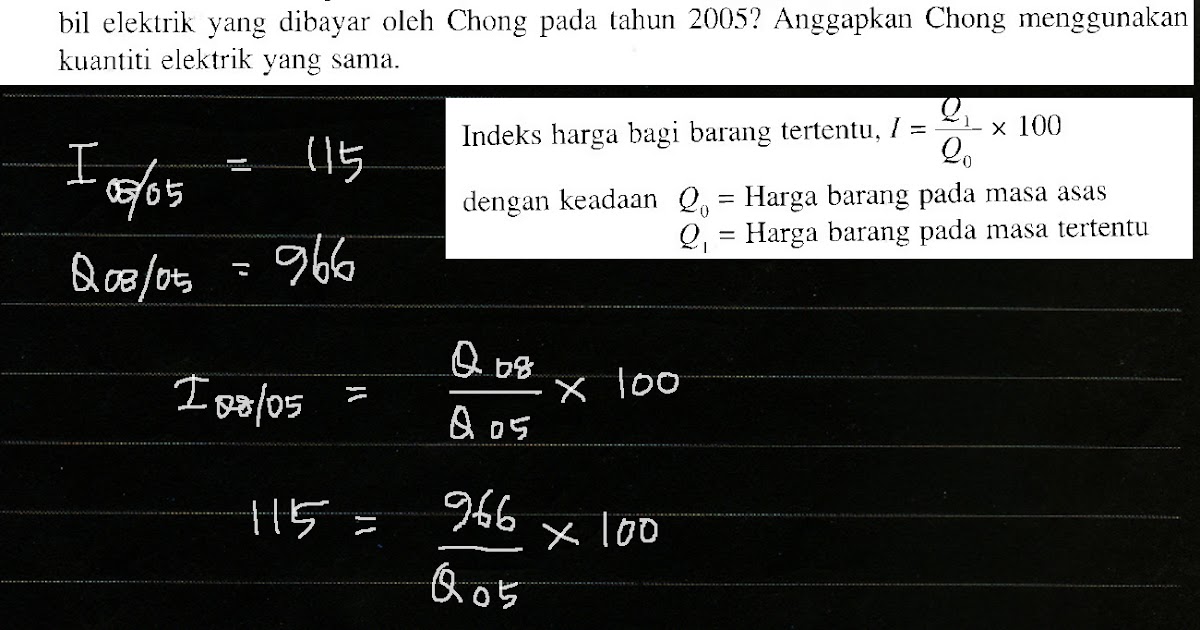 bil elektrik yang dibayar oleh Chong pada tahun 2005? Anggapkan Chong menggunakan
kuantiti elektrik yang sama.
Indeks harga bagi barang tertentu, I = Q₁/Q₀ × 100
dengan keadaan Q₀ = Harga barang pada masa asas
Q₁ = Harga barang pada masa tertentu
I 08/05 = 115
Q 08/05 = 966
I 08/05 = Q 08/Q 05 × 100
115 = 966/Q 05 × 100